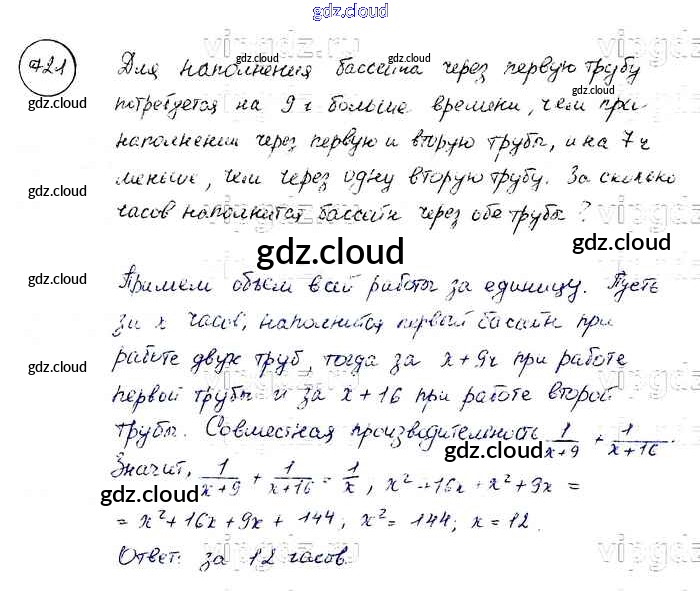 gdz.cloud
721 Для наполнения бассейна через первую трубу
потребуется на 9 ч больше времени, чем при
наполнении через первую и вторую трубы, и на 7 ч
меньше, чем через одну вторую трубу. За сколько
часов наполнится бассейн через обе трубы?
Примем объем всей работы за единицу. Пусть
за x часов, наполнится первый басайн при
работе двух труб, тогда за x + 9ч при работе
первой трубы и за x + 16 при работе второй
трубы. Совместная производительность 1/(x+9) + 1/(x+16).
Значит, 1/(x+9) + 1/(x+16) = 1/x, x² + 16x + x² + 9x =
= x² + 16x + 9x + 144, x² = 144; x = 12.
Ответ: за 12 часов.
gdz.cloud
gdz.cloud
gdz.cloud
gdz.cloud
gdz.cloud
gdz.cloud
gdz.cloud
gdz.cloud
gdz.cloud
gdz.cloud
gdz.cloud
gdz.cloud
gdz.cloud